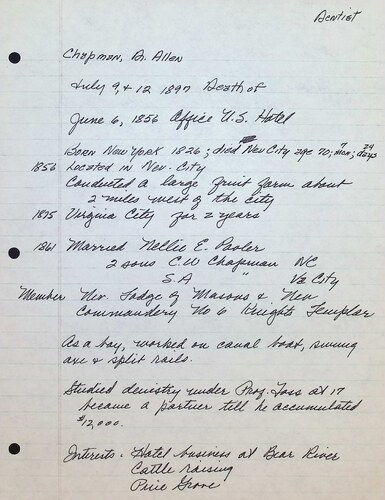 Dentist
Chapman, B. Allen
July 9, & 12 1897 Death of
June 6, 1856 Office U.S. Hotel
Born New York 1826; died Nev City age 70; 7 mon; 24 days
1856 Located in Nev. City
Conducted a large fruit farm about
2 miles west of the city
1875 Virginia City for 2 years
1861 Married Nellie E. Pooler
2 sons C.W Chapman NC
S.A " Va City
Member Nev. Lodge of Masons & Nev
Commandery No 6 Knights Templar
As a boy, worked on canal boat, swung
axe & split rails.
Studied denistry under Prof. Foss at 17
became a partner till he accumulated
$12,000.
Interests. Hotel business at Bear River
Cattle raising
Pine Grove